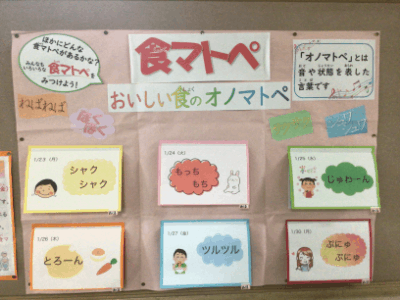 ほかにどんな
食マトペがあるかな?
みんなも
いろいろな食マトペを
みつけよう!
食マトペ
おいしい食のオノマトペ
「オノマトペ」とは
音や状態を表した
言葉です
ねばねば
ほく
ほく
シュワ
シュワ
1/23 (月)
シャク
シャク
1/24 (火)
もっち
もち
1/25 (水)
じゅわーん
1/26 (木)
とろーん
1/27 (金)
ツルツル
1/30 (月)
ぷにゅ
ぷにゅ